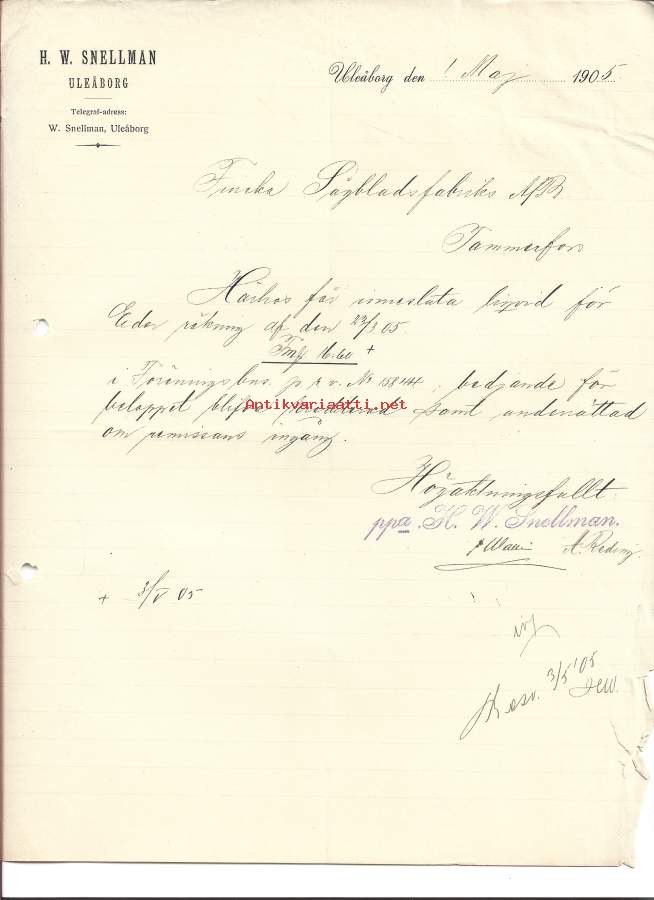 H. W. SNELLMAN
ULEÅBORG
Telegraf-adress:
W. Snellman, Uleåborg
Uleåborg den 1 Maj 1905
Finska Sågbladsfabriks A/B
Tammerfors
Härhos får innesluta liqvid för
Eder räkning af den 23/3 05.
Fmf 16.60 +
i Föreningsbns. p r v. No 15844, bedjande för
beloppet blifva krediterad samt underrättad
om remissans ingång.
Antikvariaatti.net
Högaktningsfullt
ppa. H. W. Snellman.
A. Reding
+ 3/V 05
3/5 '05